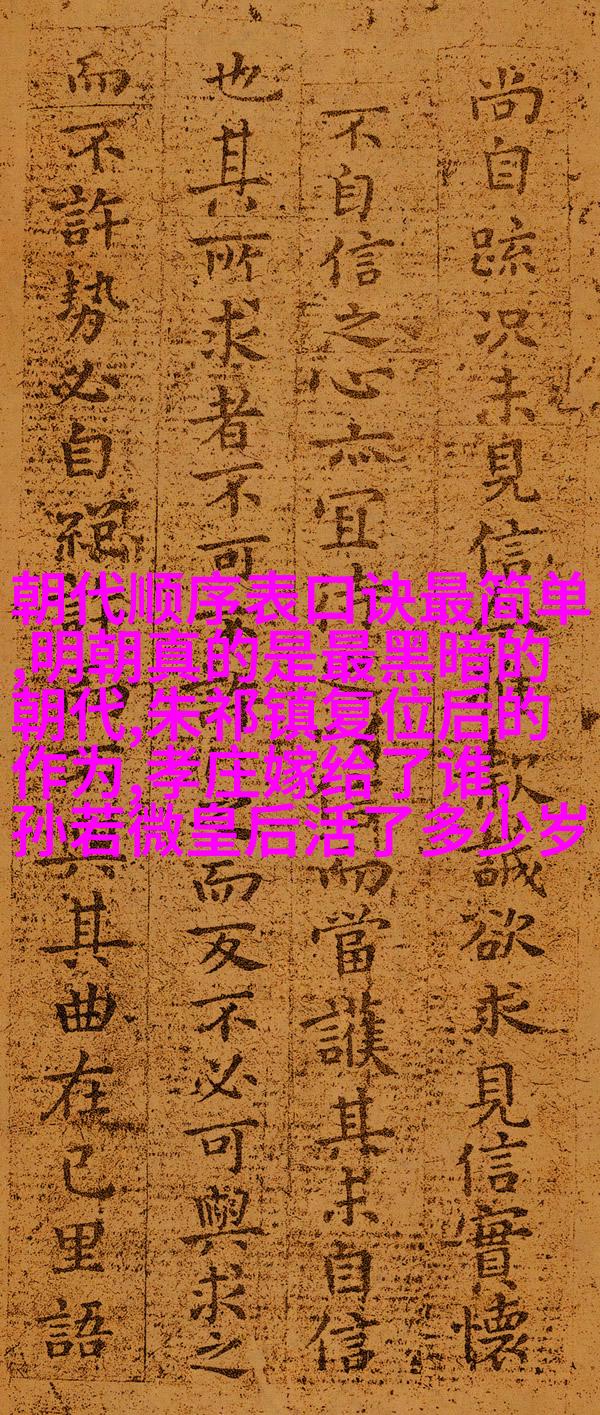 尚自疏况未見信款誠欲求見信實懷
不自信之心亦宜而當護其未自信
也其所求者不可許而反不必可與求之
而不許勢必自絕其曲在己里語
朝代顺序表口诀最简单
,明朝真的是最黑暗的
朝代,朱祁镇复位后的
作为,孝庄嫁给了谁,
孙若微皇后活了多少岁